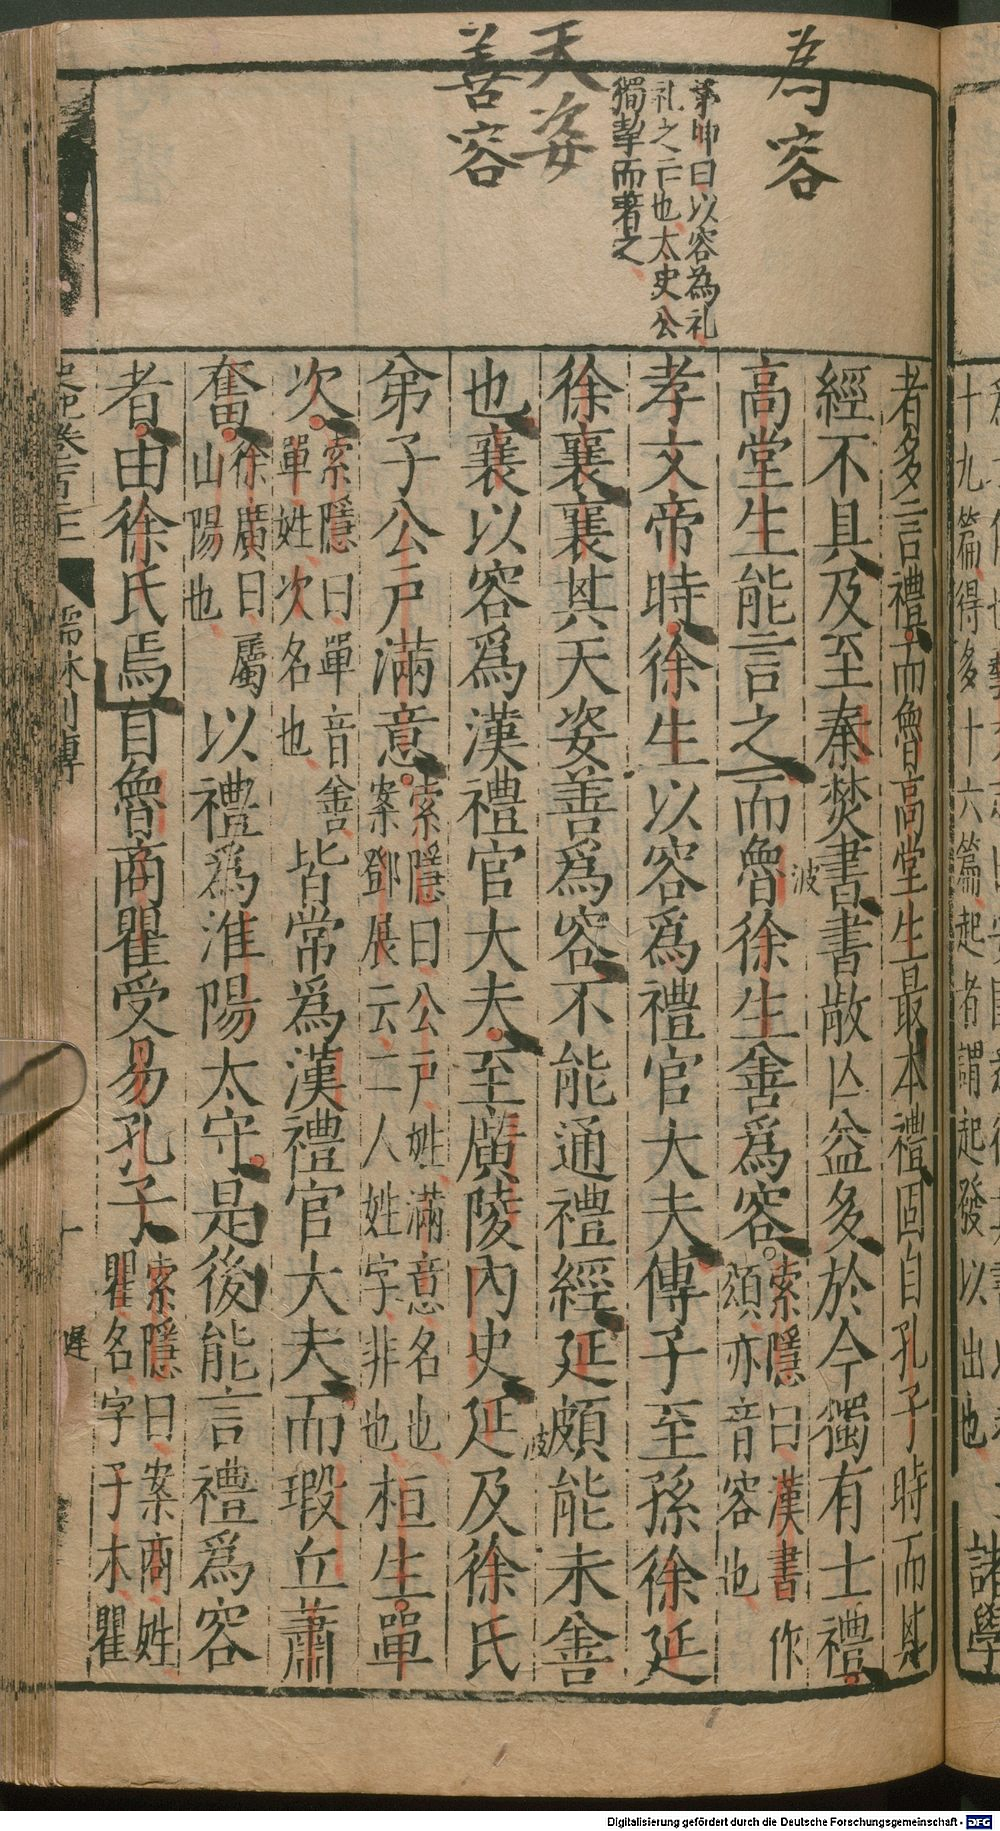 為容
茅坤曰以容為礼
礼之亡也太史公
獨挈而著之
天姿
善容
者多言禮而魯高堂生最本禮固自孔子時而其
經不具及至秦焚書書散亡益多於今獨有士禮
高堂生能言之而魯徐生善爲容索隱曰漢書作
頌亦音容也
孝文帝時徐生以容爲禮官大夫傳子至孫徐延
徐襄襄其天姿善爲容不能通禮經延頗能未善
也襄以容爲漢禮官大夫至廣陵內史延及徐氏
弟子公戶滿意索隱曰公戶姓滿意名也
案鄧展云二人姓字非也桓生單
次索隱曰單音善
單姓次名也皆常爲漢禮官大夫而瑕丘蕭
奮徐廣曰屬
山陽也以禮爲淮陽太守是後能言禮爲容
者由徐氏焉自魯商瞿受易孔子索隱曰案商姓
瞿名字子木瞿
波
波
儒林列傳
十
遲
十九篇得多十六篇起者謂起發以出也
諸學
Digitalisierung gefördert durch die Deutsche Forschungsgemeinschaft - DFG